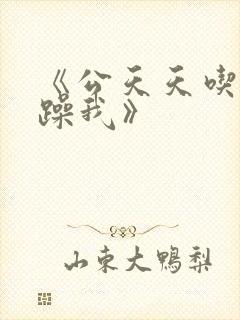 《公天天喫
躁我》
山东大鸭梨